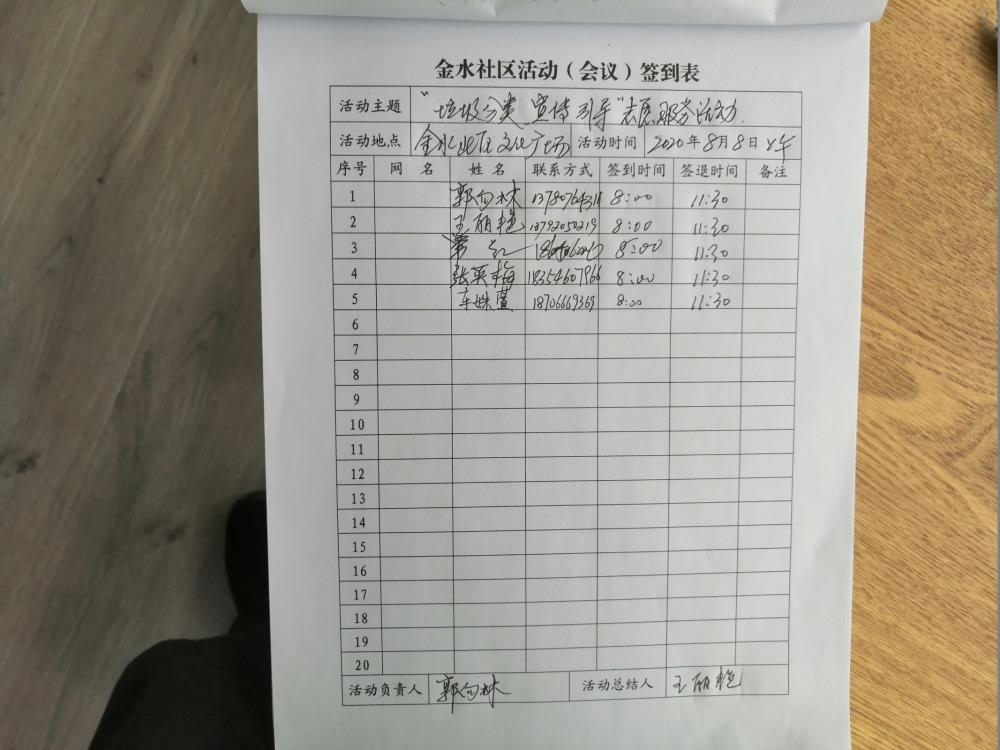 金水社区活动（会议）签到表
活动主题 "垃圾分类 宣传引导"志愿服务活动.
活动地点 金水社区文化广场 活动时间 2020年8月8日 上午
序号 网 名 姓 名 联系方式 签到时间 签退时间 备注
1 郭向林 8:00 11:30
2 王丽艳 13792050219 8:00 11:30
3 红 8:00 11:30
4 张英梅 18354607966 8:00 11:30
5 车姝萱 18706669369 8:00 11:30
6
7
8
9
10
11
12
13
14
15
16
17
18
19
20
活动负责人 郭向林 活动总结人 王丽艳